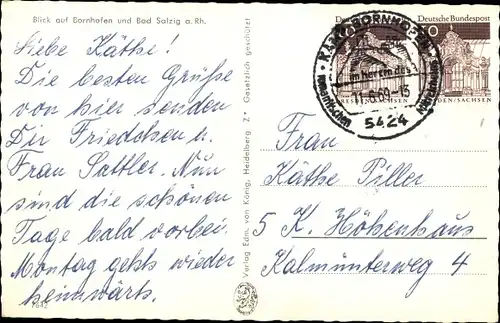 Blick auf Bornhofen und Bad Salzig a. Rh.
Liebe Käthe!
Die besten Grüße
von hier senden
Dir Friedchen u.
Frau Sattler. Nun
sind die schönen
Tage bald vorbei.
Montag gehts wieder
heimwärts.
7842
Verlag Edm. von König, Heidelberg Z* Gesetzlich geschützt
Deutsche Bundespost
DRESDEN/SACHSEN
11.6.69-15
5424
Frau
Käthe Piller
5 K. Höhenhaus
Kalmünterweg 4